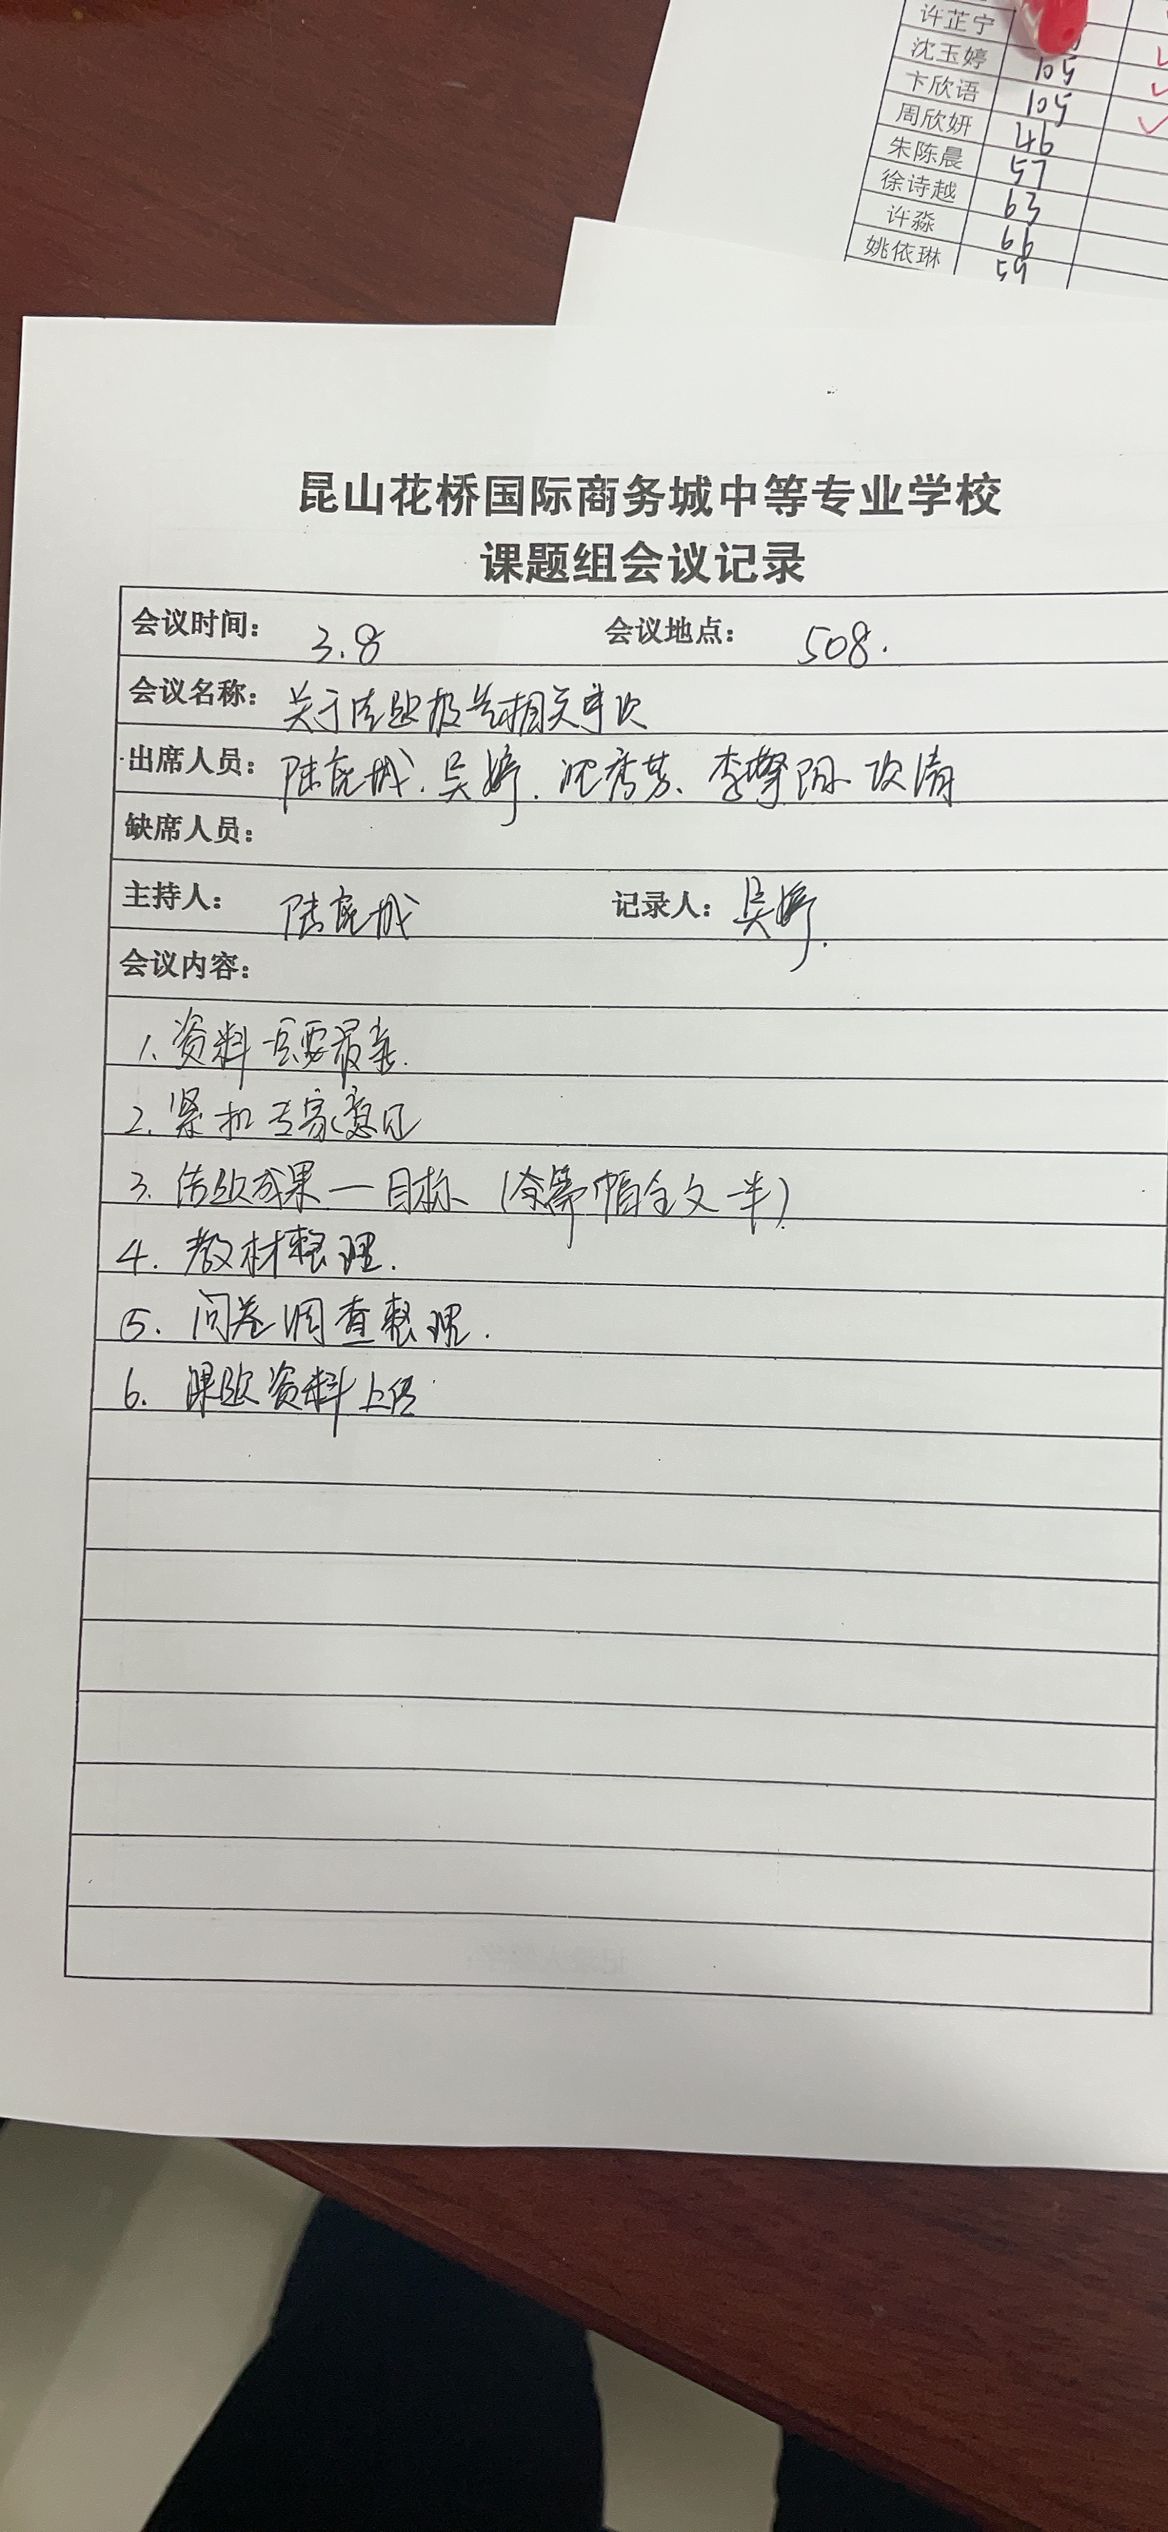 许芷宁
沈玉婷 105
卞欣语 105
周欣妍 46
朱陈晨 57
徐诗越 63
许淼 66
姚依琳 59
昆山花桥国际商务城中等专业学校
课题组会议记录
会议时间： 3.8 会议地点： 508.
会议名称： 关于结题报告相关事次
出席人员： 吴婷.沈秀芳、
缺席人员：
主持人： 记录人： 吴婷.
会议内容：
1.资料需要最新.
2.紧扣专家意见
3.结题成果—目标、(篇幅全文一半)
4.教材整理.
5.问卷调查整理.
6.课题资料上传